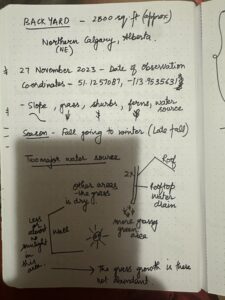 BACKYARD - 2800 sq ft (approx)
Northern Calgary, Alberta.
(NE)
* 27 November 2023 - Date of Observation
Coordinates - 51.1257087, -113.9535631
- Slope, grass, shurbs, ferns, water source
Season - Fall going to winter (Late fall)
Two major water source
Roof
2x
Other areas
- the grass is dry.
Rooftop water drain
more grassy green area
Less or almost no sunlight in this area.
Wall
The grass growth is these
not abundant